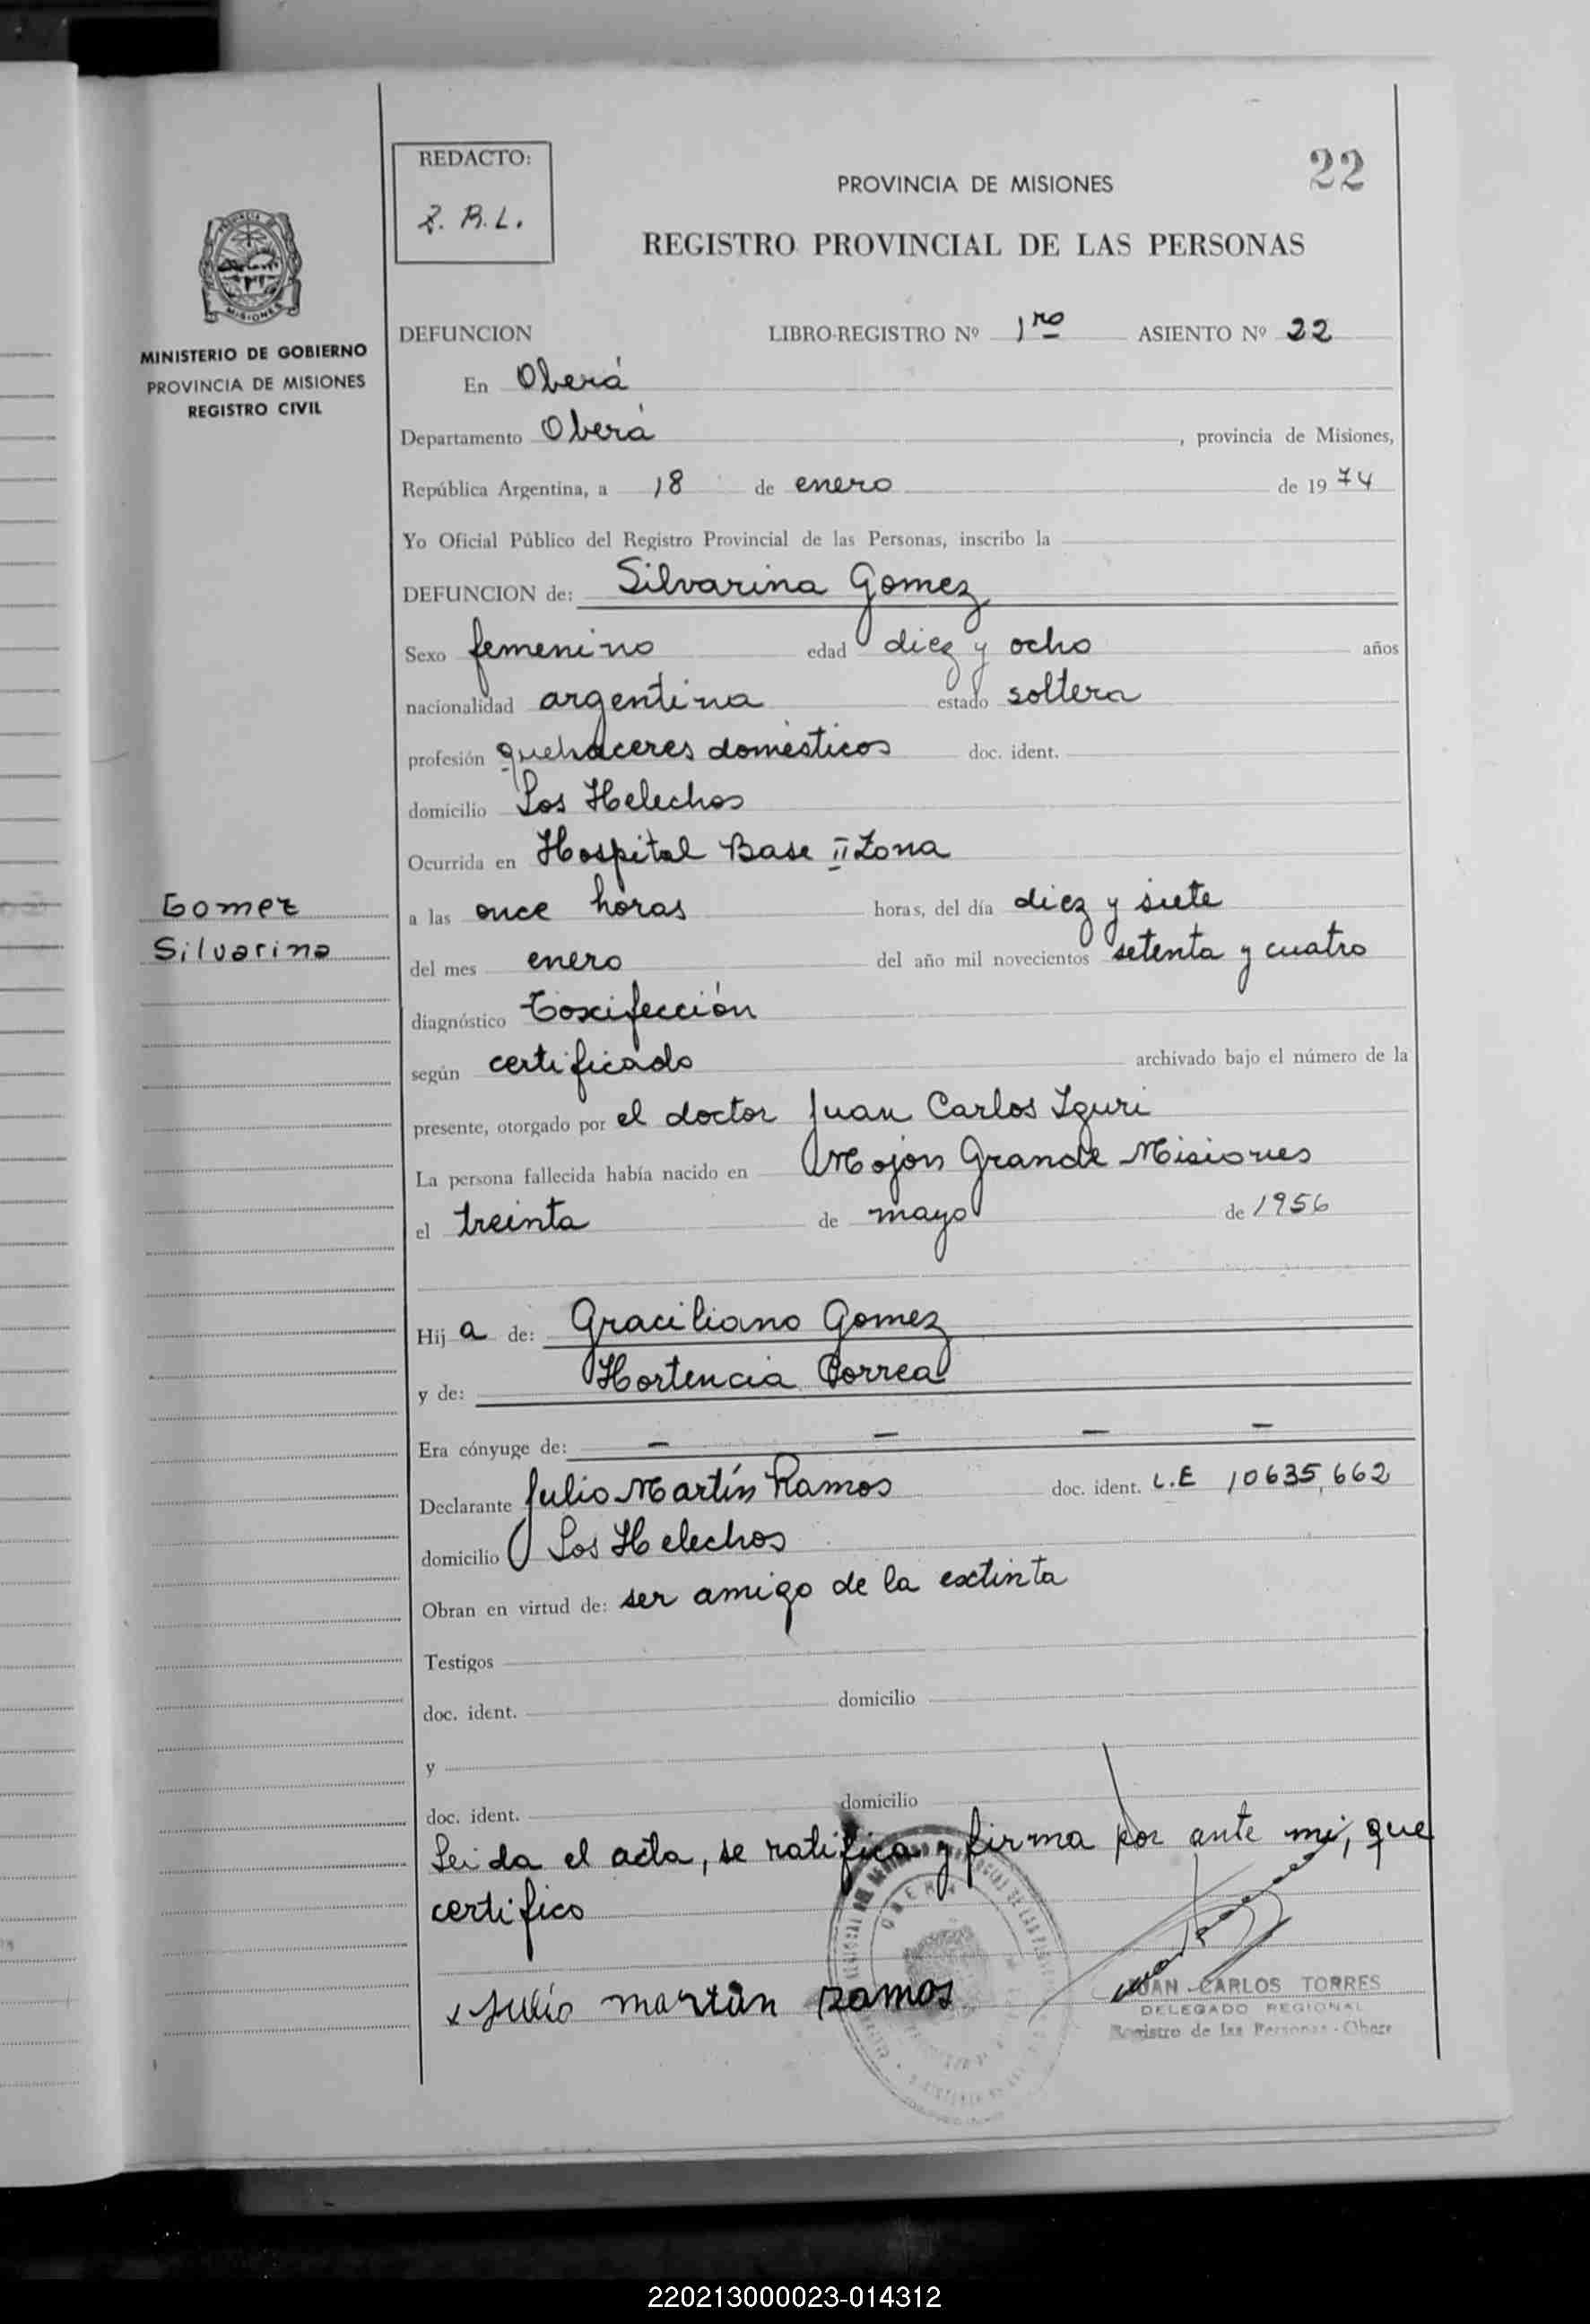 REDACTO:
R.L.
22
PROVINCIA DE MISIONES
REGISTRO PROVINCIAL DE LAS PERSONAS
MISIONES
MINISTERIO DE GOBIERNO
PROVINCIA DE MISIONES
REGISTRO CIVIL
DEFUNCION LIBRO-REGISTRO Nº 1ro ASIENTO Nº 22
En Oberá
Departamento Oberá, provincia de Misiones,
República Argentina, a 18 de enero de 1974
Yo Oficial Público del Registro Provincial de las Personas, inscribo la
DEFUNCION de: Silvarina Gomez
Sexo femenino edad diez y ocho años
nacionalidad argentina estado soltera
profesión quehaceres domésticos doc. ident.
domicilio Los Helechos
Ocurrida en Hospital Base II Zona
Gomez
Silvarina
a las once horas horas, del día diez y siete
del mes enero del año mil novecientos setenta y cuatro
diagnóstico Toxifección
según certificado archivado bajo el número de la
presente, otorgado por el doctor Juan Carlos Iguri
La persona fallecida había nacido en Mojón Grande Misiones
el treinta de mayo de 1956
Hij a de: Graciliano Gomez
y de: Hortencia Correa
Era cónyuge de: - - - -
Declarante Julio Martín Ramos doc. ident. L.E 10635,662
domicilio Los Helechos
Obran en virtud de: ser amigo de la extinta
Testigos
doc. ident. domicilio
y
doc. ident. domicilio
Leida el acta, se ratifica y firma por ante mi, que
certifico
x Julio martin Ramos
JUAN CARLOS TORRES
DELEGADO REGIONAL
Registro de las Personas - Obera
220213000023-014312